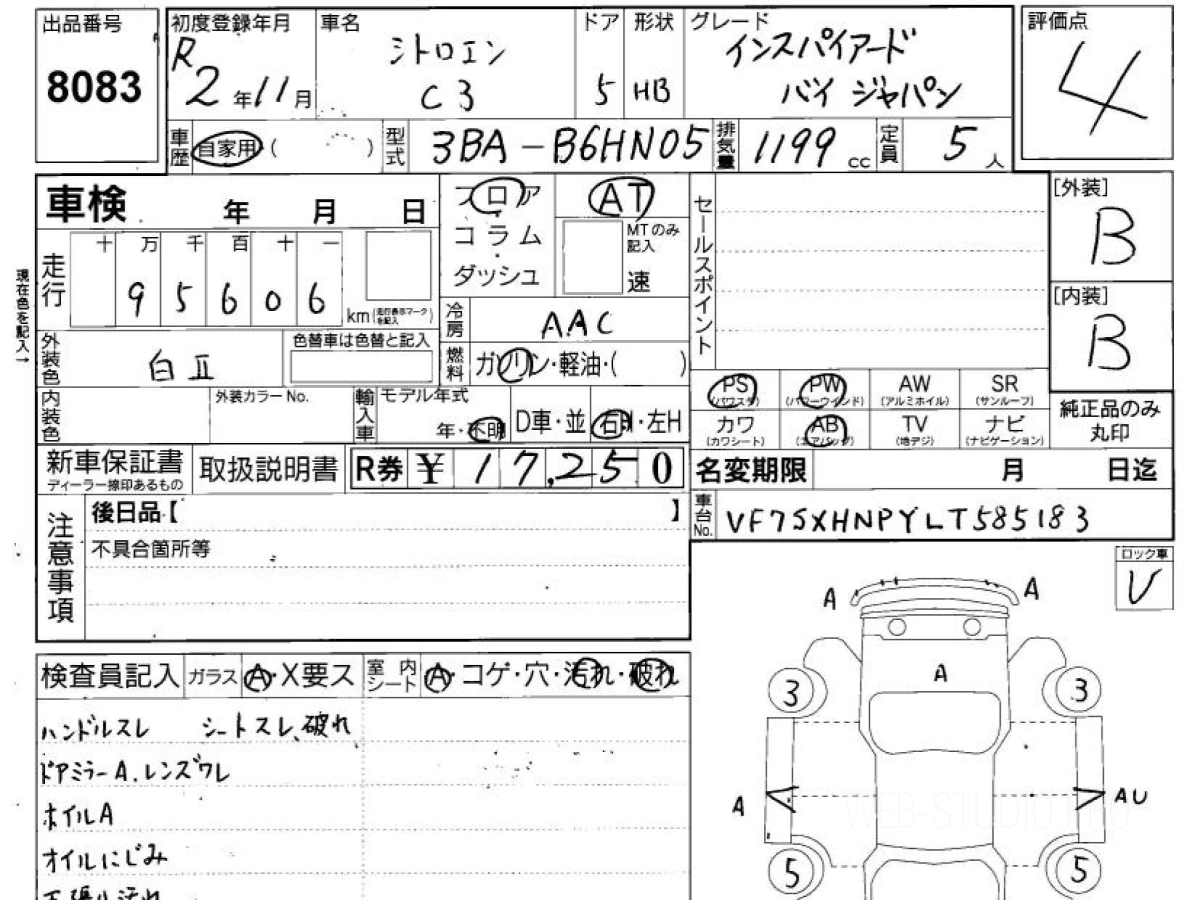 出品番号
8083
初度登録年月
R2年11月
車名
シトロエン
C3
ドア
5
形状
HB
グレード
インスパイアード
バイ ジャパン
評価点
4
車歴 自家用 ( )
型式 3BA-B6HN05
排気量 1199 cc
定員 5人
車検 年 月 日
現在色を記入→
走行
十 万 千 百 十 一
9 5 6 0 6 km (走行表示マークを記入)
フロア
コラム
ダッシュ
AT
MTのみ記入
速
セールスポイント
[外装]
B
[内装]
B
冷房 AAC
外装色 白Ⅱ
色替車は色替と記入
燃料 ガソリン・軽油・( )
内装色
外装カラーNo.
輸入車 モデル年式
年・不明
D車・並
右H・左H
PS (パワステ)
PW (パワーウインド)
AW (アルミホイル)
SR (サンルーフ)
カワ (カワシート)
AB (エアバッグ)
TV (地デジ)
ナビ (ナビゲーション)
純正品のみ
丸印
新車保証書
ディーラー捺印あるもの
取扱説明書
R券 ¥ 17,250
名変期限 月 日迄
車台No. VF7SXHNPYLT585183
注意事項
後日品【 】
不具合箇所等
ロック車
V
A A
A
3 3
A AU
5 5
WEB-STUDIO.PRO
検査員記入
ガラス A・X要ス
室内シート A・コゲ・穴・汚れ・破れ
ハンドルスレ シートスレ、破れ
ドアミラーA、レンズワレ
ホイルA
オイルにじみ